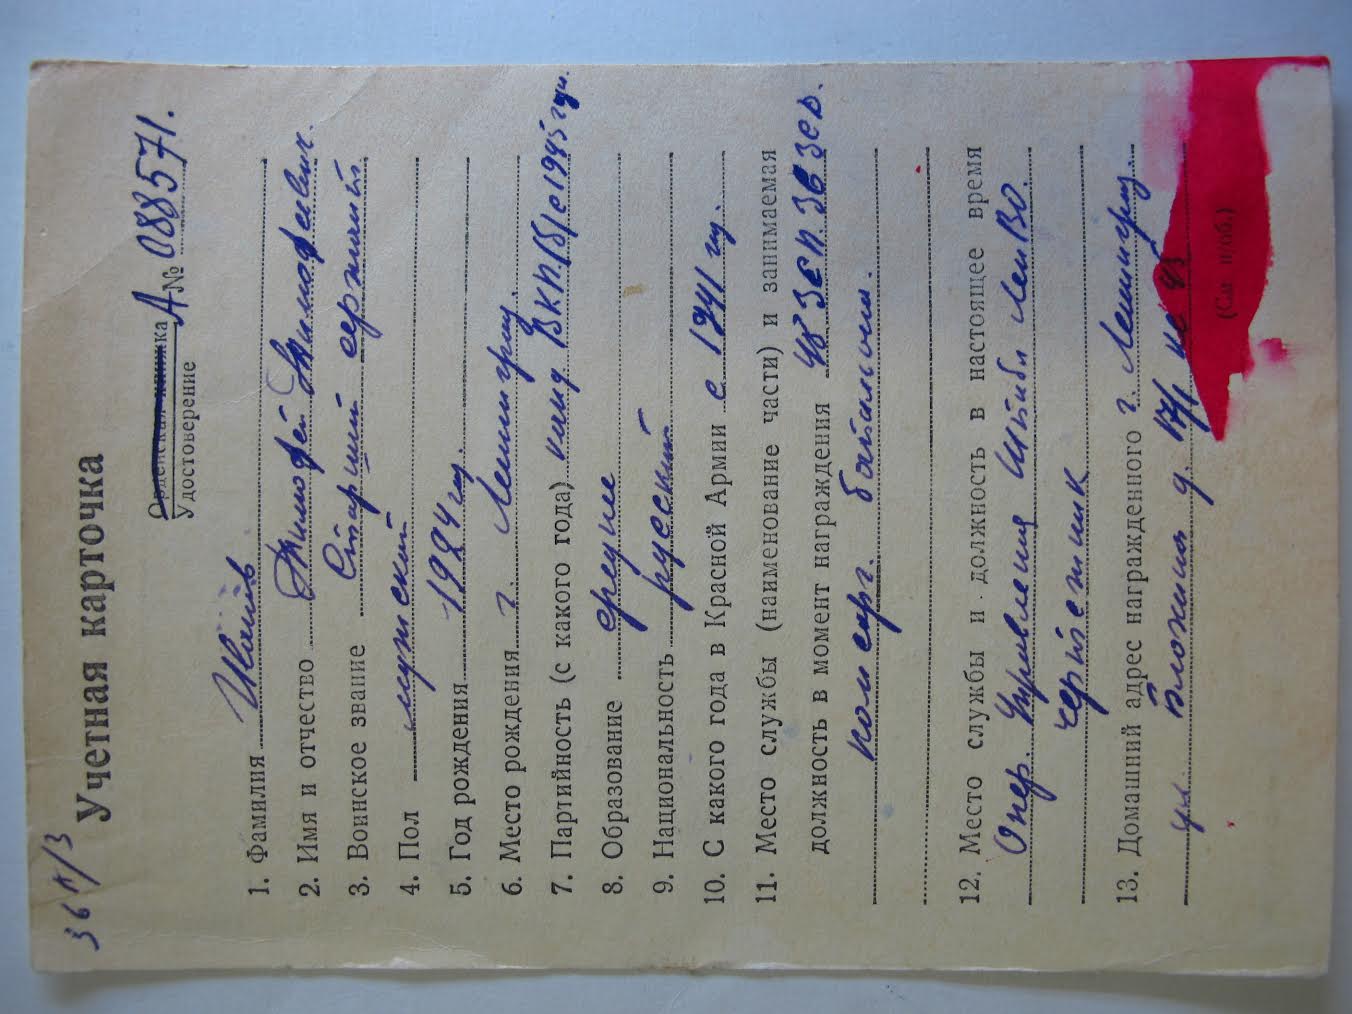 36 к/3
Учетная карточка
Орденская книжка
Удостоверение А № 088571.
1. Фамилия
2. Имя и отчество Тимофей Тимофеевич.
3. Воинское звание Старший сержант
4. Пол мужской
5. Год рождения 1924 г.
6. Место рождения г. Ленинград
7. Партийность (с какого года) ВКП(б) с 1945
8. Образование среднее
9. Национальность русский
10. С какого года в Красной Армии с 1941
11. Место службы (наименование части) и занимаемая
должность в момент награждения
батальона.
12. Место службы и должность в настоящее время
Опер. Управления Штаба ЛенВО.
чертежник
13. Домашний адрес награжденного г. Ленинград
ул. Блохина д. 17/1 кв
(См. на об.)